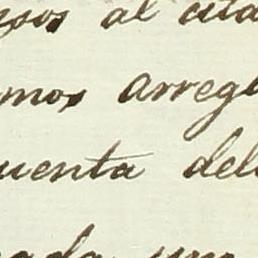 esos al cita
mos arregl
uenta del
ada una